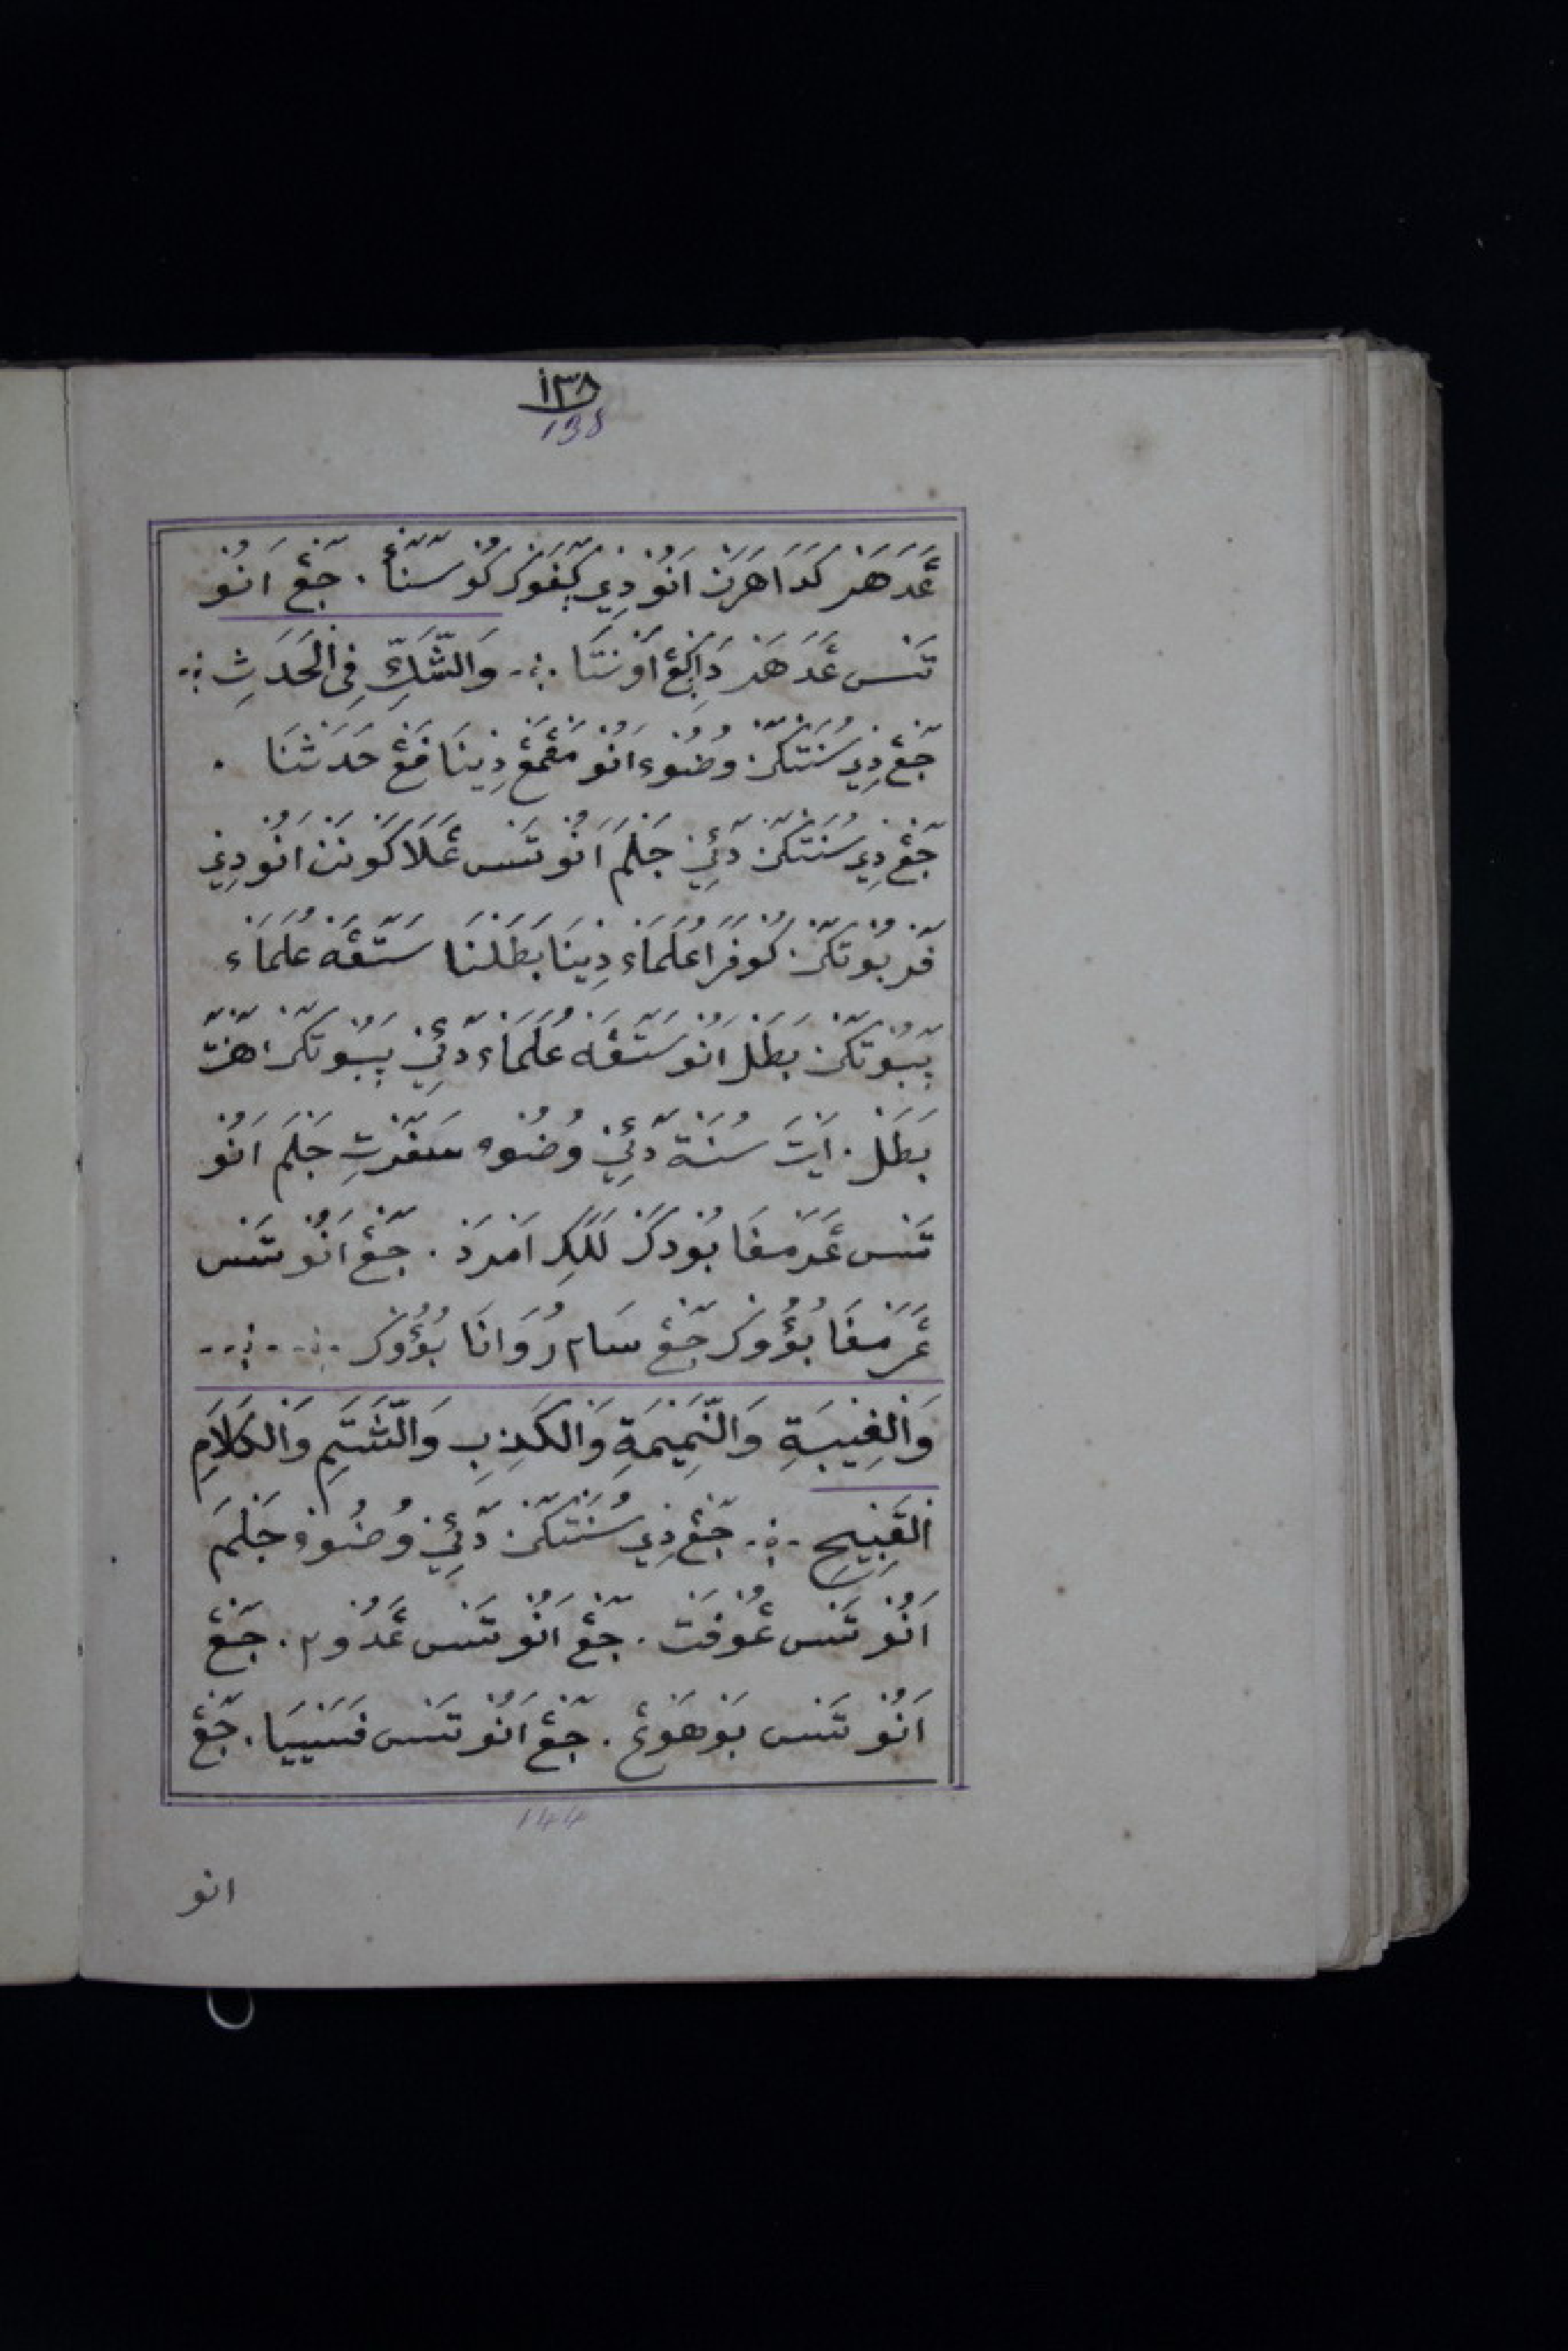 ١٣٨
138
عَدَهَنْ كَدَاهَرَنْ اَنُوْ دِيْ كٜفَوْكَرْ كُوْسَنْنَاْ . جَڠْ اَنُوْ
تَنْس عَدَهَنْ دَاكِعْ اَوْنَتَا .؞. وَالشَّكِّ فِى الْحَدَثِ ؞
جَڠْ دِيْ سُنَتَكَنْ وُضُوْء اَنُوْ مَڠْمَڠْ دِيْنَا فَڠْ حَدَثْنَا .
جَڠْ دِيْ سُنَتَكَنْ دَئِيْ جَلْمَ اَنُوْ تَنْس عَلَاكَوْنَنْ اَنُوْ دِيْ
فَرْبُوْتَكَنْ كُوْ فَرَا عُلَمَاء دِيْنَا بَطَلْنَا سَتَڠَه عُلَمَاء
پٜبُوْتَكَنْ بَطَلْ اَنُوْ سَتَڠَه عُلَمَاء دَئِيْ پٜبُوْتَكَنْ اهَنْتَ
بَطَلْ . اَيْتَ سُنَة دَئِيْ وُضُوْء سَفَرْتِ جَلْمَ اَنُوْ
تَنْس عَرَمْفَا بُوْدَكْ لَلَكِ اَمْرَدْ . جَڠْ اَنُوْ تَنْس
عَرَمْفَا بُؤُوْكْ جَڠْ سَام رُوَانَا بُؤُوْكْ .؞. .؞.
وَالْغِيْبَةِ وَالنَّمِيْمَةِ وَالْكَذِبِ وَالشَّتَمِ وَالْكَلَامِ
الْقَبِيْحِ .؞. جَڠْ دِيْ سُنَتَكَنْ دَئِيْ وُضُوْء جَلْمَ
اَنُوْ تَنْس عُوْفَتْ . جَڠْ اَنُوْ تَنْس عَدُوْم . جَڠْ
اَنُوْ تَنْس بَوْهَوْڠْ . جَڠْ اَنُوْ تَنْس فَسَيْيَا . جَڠْ
144
انو